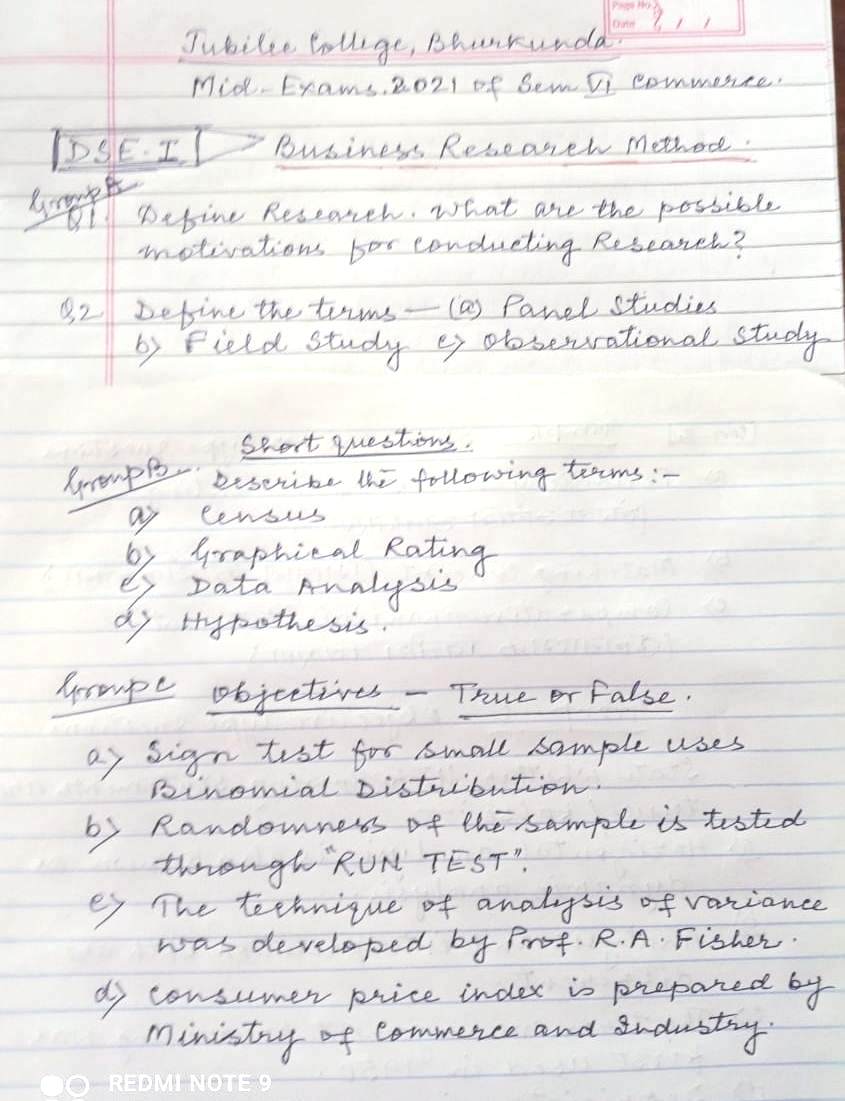 Page No.
Date / /
Jubilee College, Bhurkunda.
Mid-Exams. 2021 of Sem VI Commerce.
[DSE-I] Business Research Method.
Group A
Q1. Define Research. What are the possible
motivations for conducting Research?
Q2 Define the terms — (a) Panel Studies
b) Field Study c) Observational Study
Short questions.
Group B Describe the following terms:-
a) Census
b) Graphical Rating
c) Data Analysis
d) Hypothesis.
Group C Objectives - True or False.
a) Sign test for small sample uses
Binomial Distribution.
b) Randomness of the sample is tested
through "RUN TEST".
c) The technique of analysis of variance
was developed by Prof. R.A. Fisher.
d) Consumer price index is prepared by
Ministry of Commerce and Industry.
REDMI NOTE 9